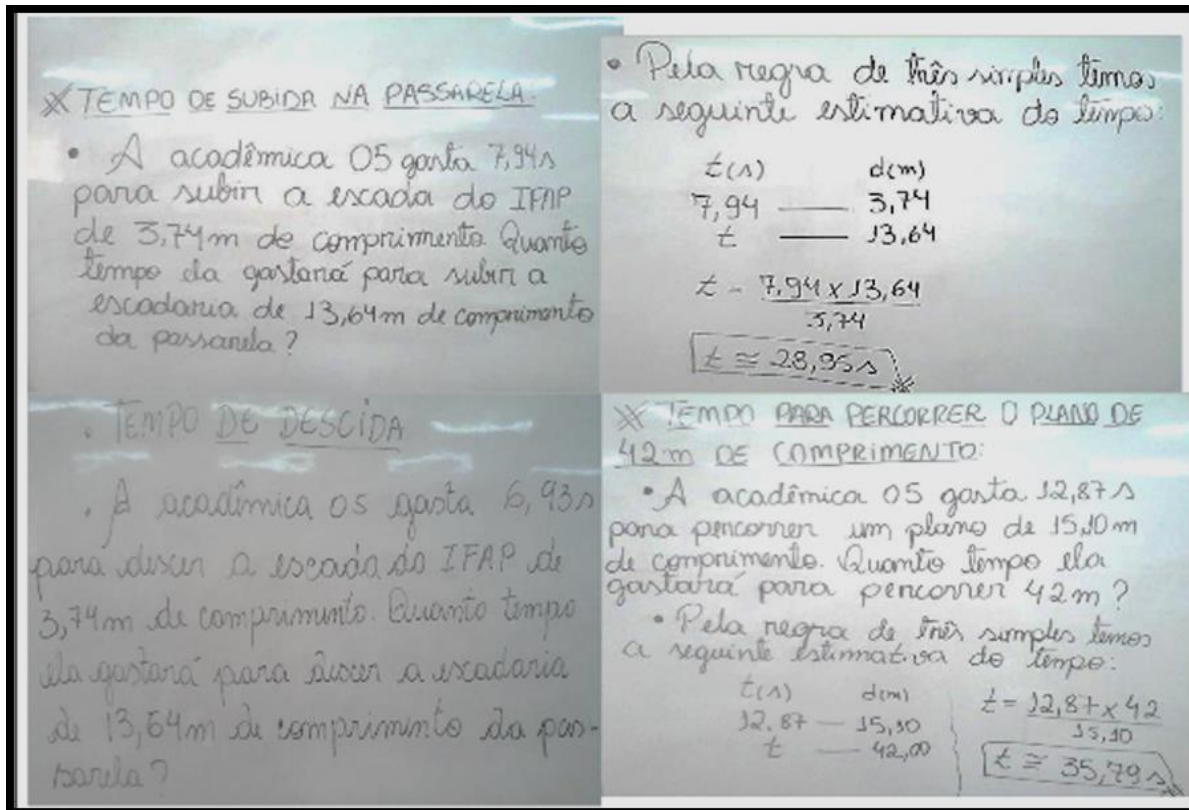 ※ TEMPO DE SUBIDA NA PASSARELA:
• A acadêmica 05 gasta 7,94s
para subir a escada do IFAP
de 3,74m de comprimento. Quanto
tempo ela gastará para subir a
escadaria de 13,64m de comprimento
da passarela?
• Pela regra de três simples temos
a seguinte estimativa do tempo:
t(s) d(m)
7,94 — 3,74
t — 13,64
t = 7,94 x 13,64
3,74
t ≅ 28,95s
• TEMPO DE DESCIDA
• A acadêmica 05 gasta 6,93s
para descer a escada do IFAP de
3,74m de comprimento. Quanto tempo
ela gastará para descer a escadaria
de 13,64m de comprimento da pas-
sarela?
※ TEMPO PARA PERCORRER O PLANO DE
42m DE COMPRIMENTO:
• A acadêmica 05 gasta 12,87s
para percorrer um plano de 15,10m
de comprimento. Quanto tempo ela
gastará para percorrer 42m?
• Pela regra de três simples temos
a seguinte estimativa do tempo:
t(s) d(m)
12,87 — 15,10
t — 42,00
t = 12,87 x 42
15,10
t ≅ 35,79s